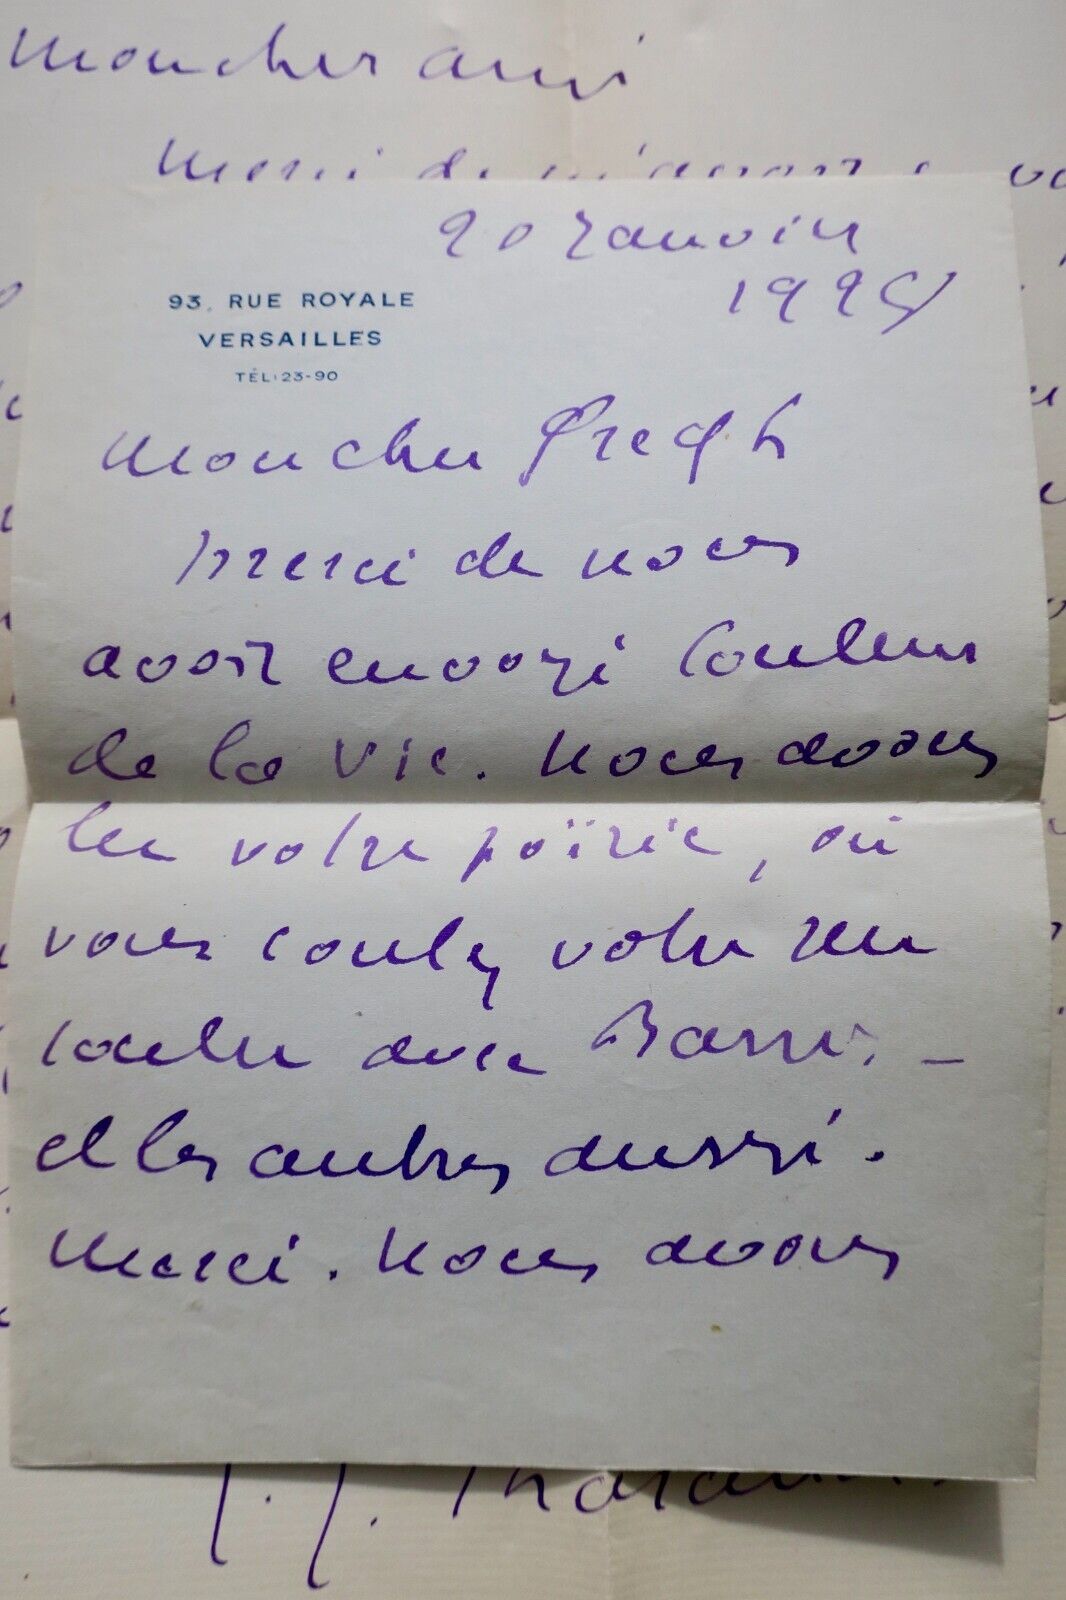 Mon cher ami
Merci de m'avoir
20 Janvier
192
93, RUE ROYALE
VERSAILLES
TÉL: 23-90
Mon cher Gregh
merci de nous
avoir envoyé Couleur
de la vie. Nous avons
lu votre poésie, où
vous contez votre ren
contre avec Barrès. –
et les autres aussi.
Merci. Nous avons
J. J. Tharaud